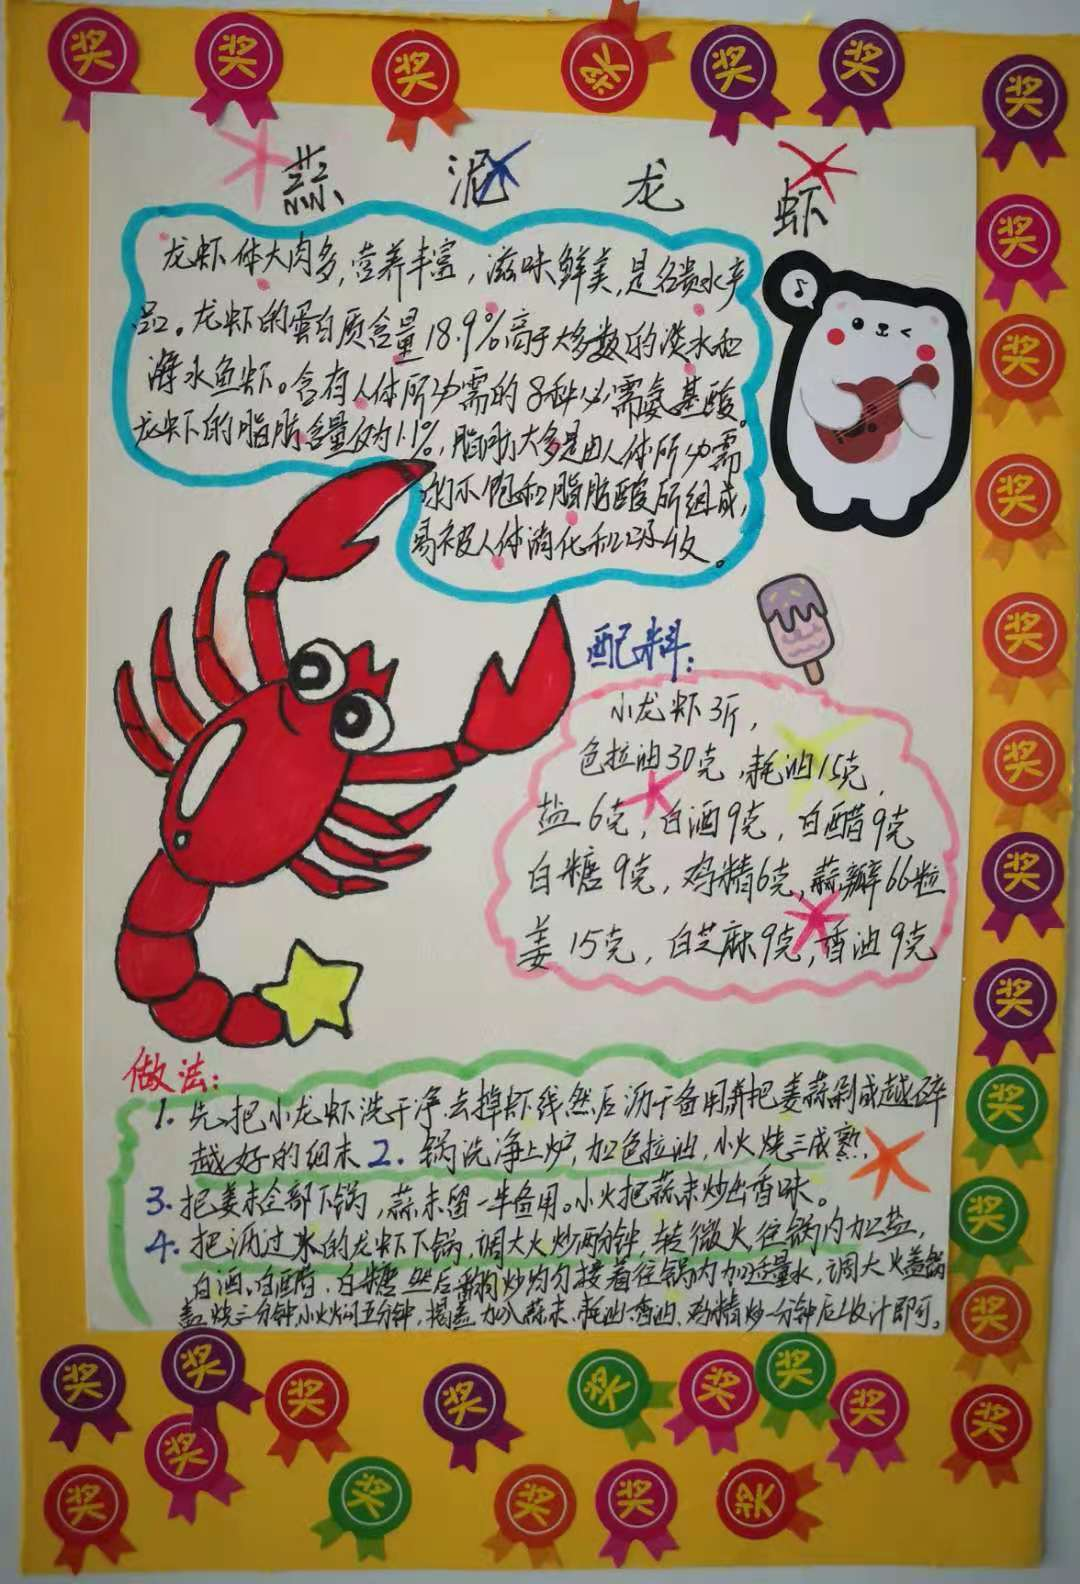 奖 奖 奖 奖 奖 奖 奖
蒜 泥 龙 虾
龙虾体大肉多，营养丰富，滋味鲜美，是名贵水产
品。龙虾的蛋白质含量18.9%高于大多数的淡水和
海水鱼虾。含有人体所必需的8种必需氨基酸。
龙虾的脂肪含量仅为1.1%，脂肪大多是由人体所必需
的不饱和脂肪酸所组成，
易被人体消化和吸收。
配料：
小龙虾3斤，
色拉油30克，耗油15克，
盐6克，白酒9克，白醋9克
白糖9克，鸡精6克，蒜瓣66粒
姜15克，白芝麻9克，香油9克
做法：
1. 先把小龙虾洗干净.去掉虾线然后沥干备用并把姜蒜剁成越碎
越好的细末 2. 锅洗净上炉，加色拉油，小火烧三成熟.
3. 把姜末全部下锅，蒜末留一半备用。小火把蒜末炒出香味。
4. 把沥过水的龙虾下锅，调大火炒两分钟，转微火，往锅内加盐，
白酒、白醋、白糖然后翻炒均匀接着往锅内加适量水，调大火盖锅
盖烧三分钟，小火焖五分钟，揭盖加入蒜末、耗油、香油、鸡精炒一分钟后收汁即可。
奖
奖
奖
奖
奖
奖
奖
奖
奖
奖
奖 奖 奖 奖 奖 奖 奖 奖 奖
奖
奖 奖 奖 奖 奖